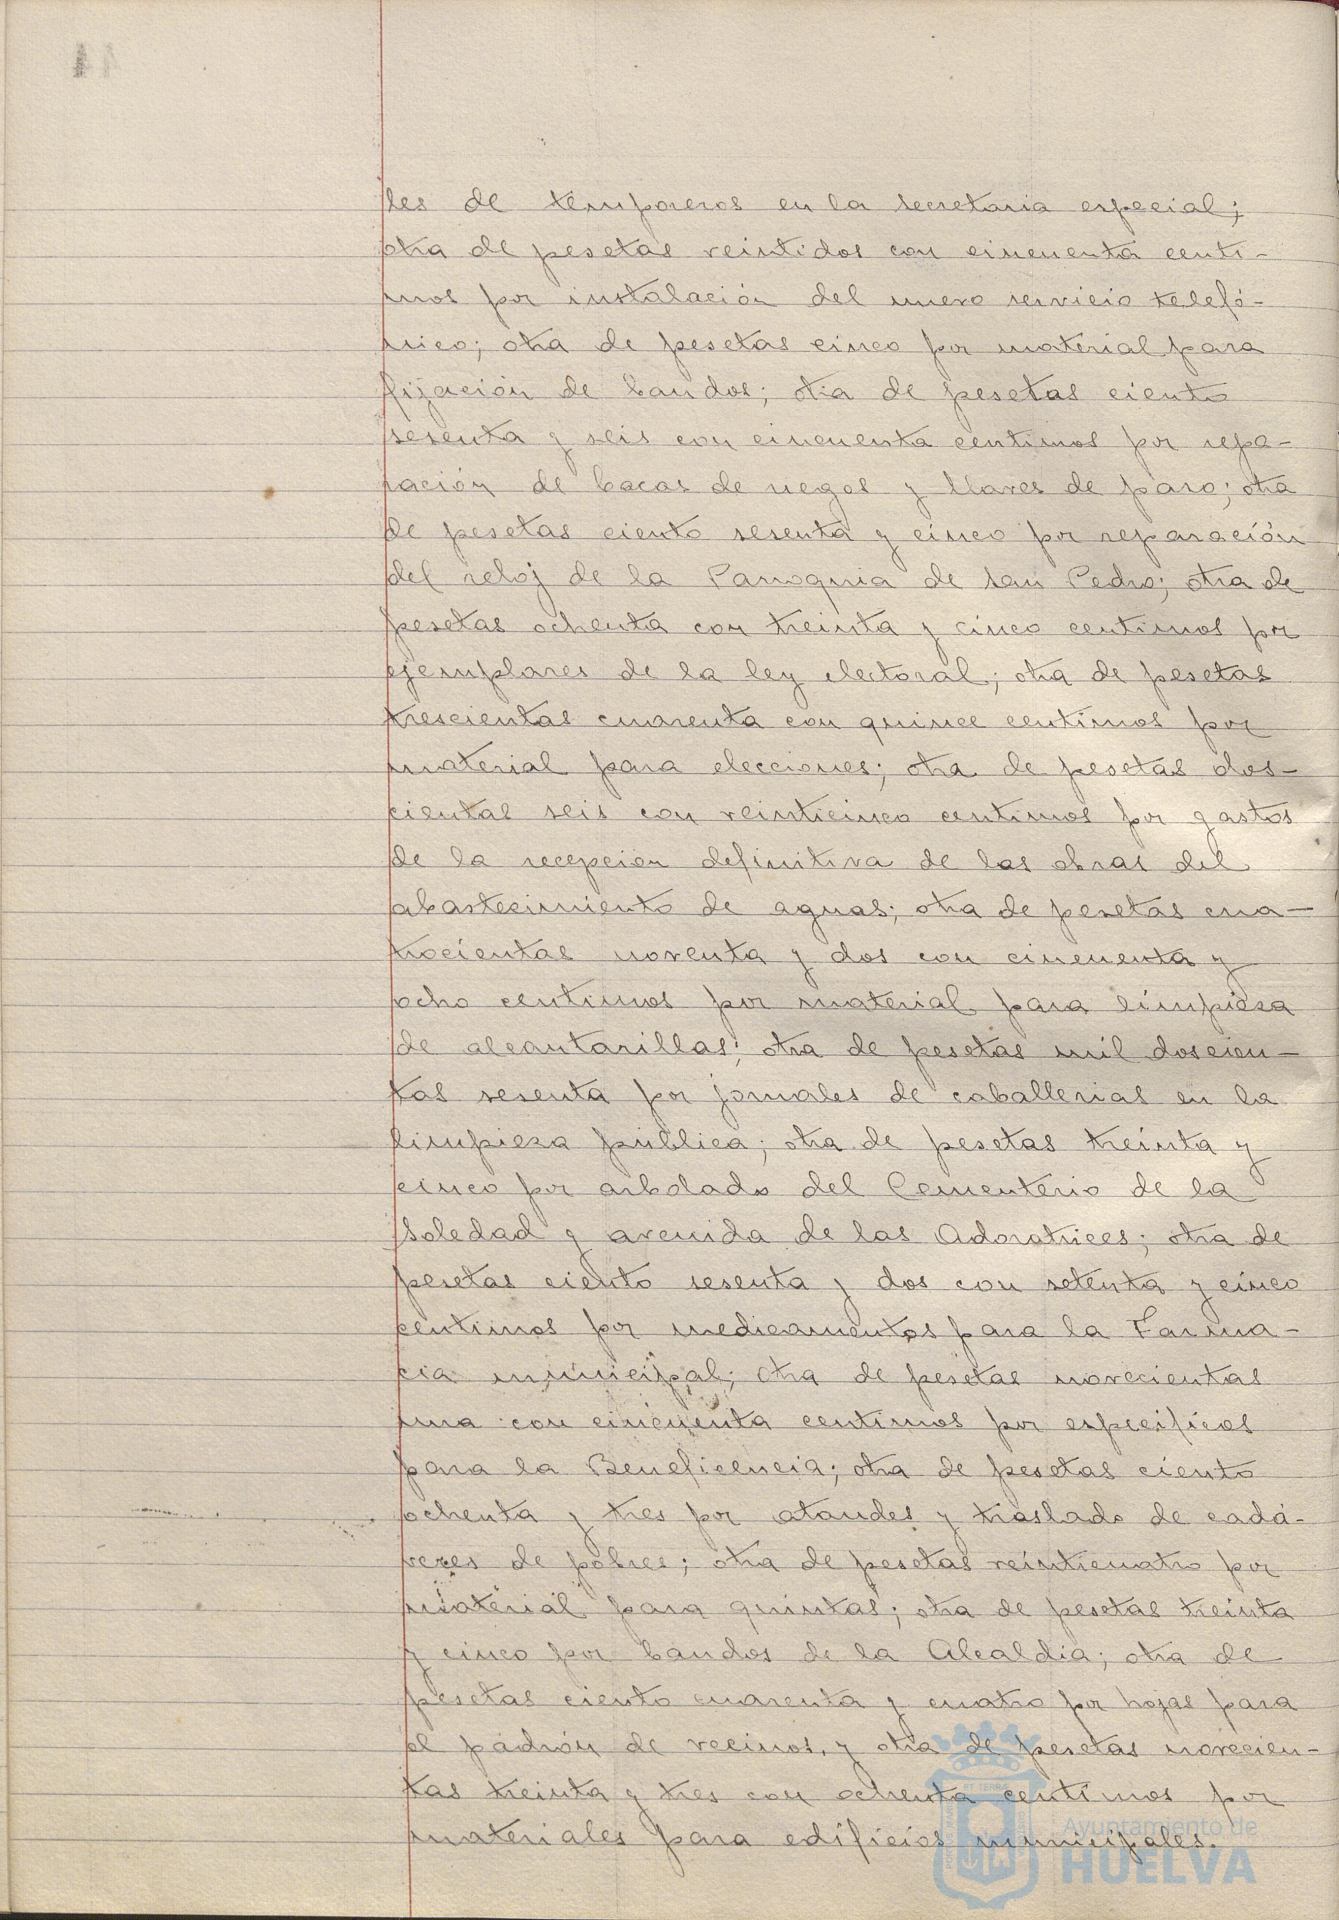 les de temporeros en la secretaria especial;
otra de pesetas veintidos con cincuenta centi-
mos por instalación del nuevo servicio telefó-
nico; otra de pesetas cinco por material para
fijación de bandos; otra de pesetas ciento
sesenta y seis con cincuenta centimos por repa-
ración de bocas de riegos y llaves de paso; otra
de pesetas ciento sesenta y cinco por reparación
del reloj de la Parroquia de San Pedro; otra de
pesetas ochenta con treinta y cinco centimos por
ejemplares de la ley electoral; otra de pesetas
trescientas cuarenta con quince centimos por
material para elecciones; otra de pesetas dos-
cientas seis con veinticinco centimos por gastos
de la recepcion definitiva de las obras del
abastecimiento de aguas; otra de pesetas cua-
trocientas noventa y dos con cincuenta y
ocho centimos por material para limpieza
de alcantarillas; otra de pesetas mil doscien-
tas sesenta por jornales de caballerias en la
limpieza pública; otra de pesetas treinta y
cinco por arbolado del Cementerio de la
Soledad y avenida de las Adoratrices; otra de
pesetas ciento sesenta y dos con setenta y cinco
centimos por medicamentos para la Farma-
cia municipal; otra de pesetas novecientas
una con cincuenta centimos por especificos
para la Beneficencia; otra de pesetas ciento
ochenta y tres por ataudes y traslado de cadá-
veres de pobres; otra de pesetas veinticuatro por
material para quintas; otra de pesetas treinta
y cinco por bandos de la Alcaldia; otra de
pesetas ciento cuarenta y cuatro por hojas para
el padrón de vecinos, y otra de pesetas novecien-
tas treinta y tres con ochenta centimos por
materiales para edificios municipales.
Ayuntamiento de
HUELVA